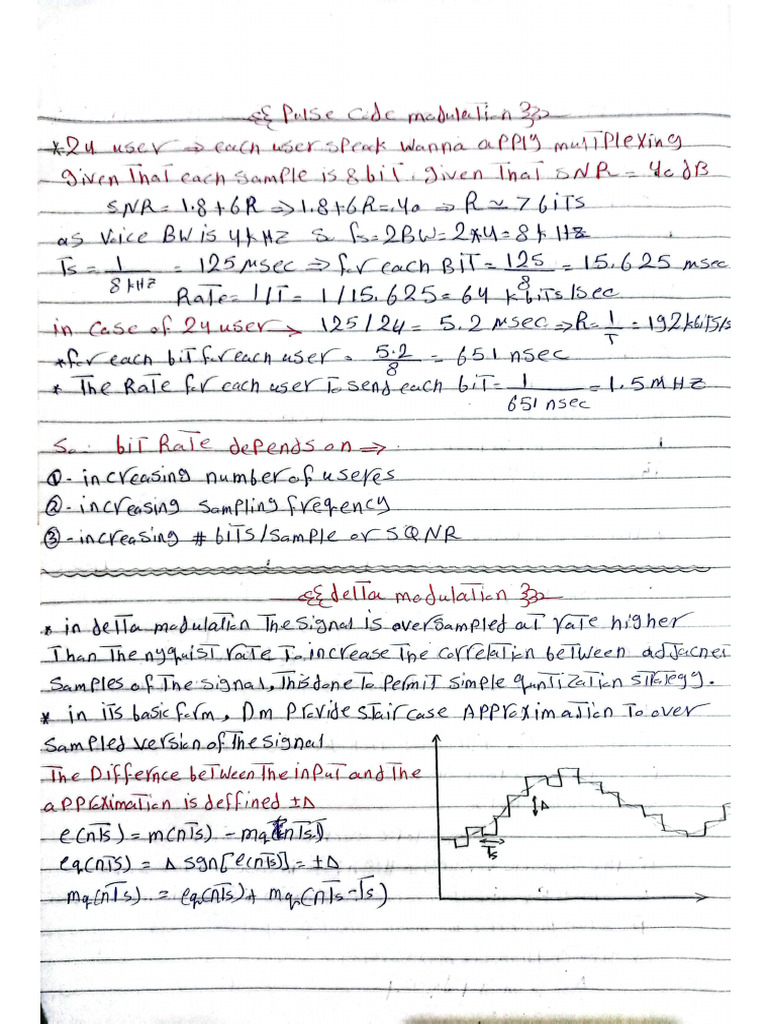 <<{ Pulse code modulation }>>
*24 user ⇒ each user speak wanna apply multiplexing
given that each sample is 8 bit. given that SNR = 40 dB
SNR = 1.8 + 6R ⇒ 1.8 + 6R = 40 ⇒ R ≃ 7 bits
as voice BW is 4 kHz & fs = 2BW = 2*4 = 8 kHz
Ts = 1/8kHz = 125 Msec ⇒ for each BiT = 125/8 = 15.625 msec
Rate = 1/T = 1/15.625 = 64 kbits/sec
in case of 24 user → 125/24 = 5.2 Msec ⇒ R = 1/T = 192 kbits/s
*for each bit for each user = 5.2/8 = 651 nsec
* The Rate for each user to send each bit = 1/651 nsec = 1.5 MHz
So bit Rate depends on ⇒
① - increasing number of useres
② - increasing sampling freqency
③ - increasing # bits/sample or SQNR
<<{ delta modulation }>>
* in delta modulation the signal is oversampled at rate higher
Than the nyquist rate to increase the correlation between adjacnet
samples of the signal, this done to permit simple quntization strategy.
* in its basic form, Dm Provide staircase Approximation to over
sampled version of the signal
The Differnce between the input and the
approximation is deffined ±Δ
e(nTs) = m(nTs) - mq(nTs)
eq(nTs) = Δ sgn[e(nTs)] = ±Δ
mq(nTs) = eq(nTs) + mq(nTs - Ts)
Δ
Ts